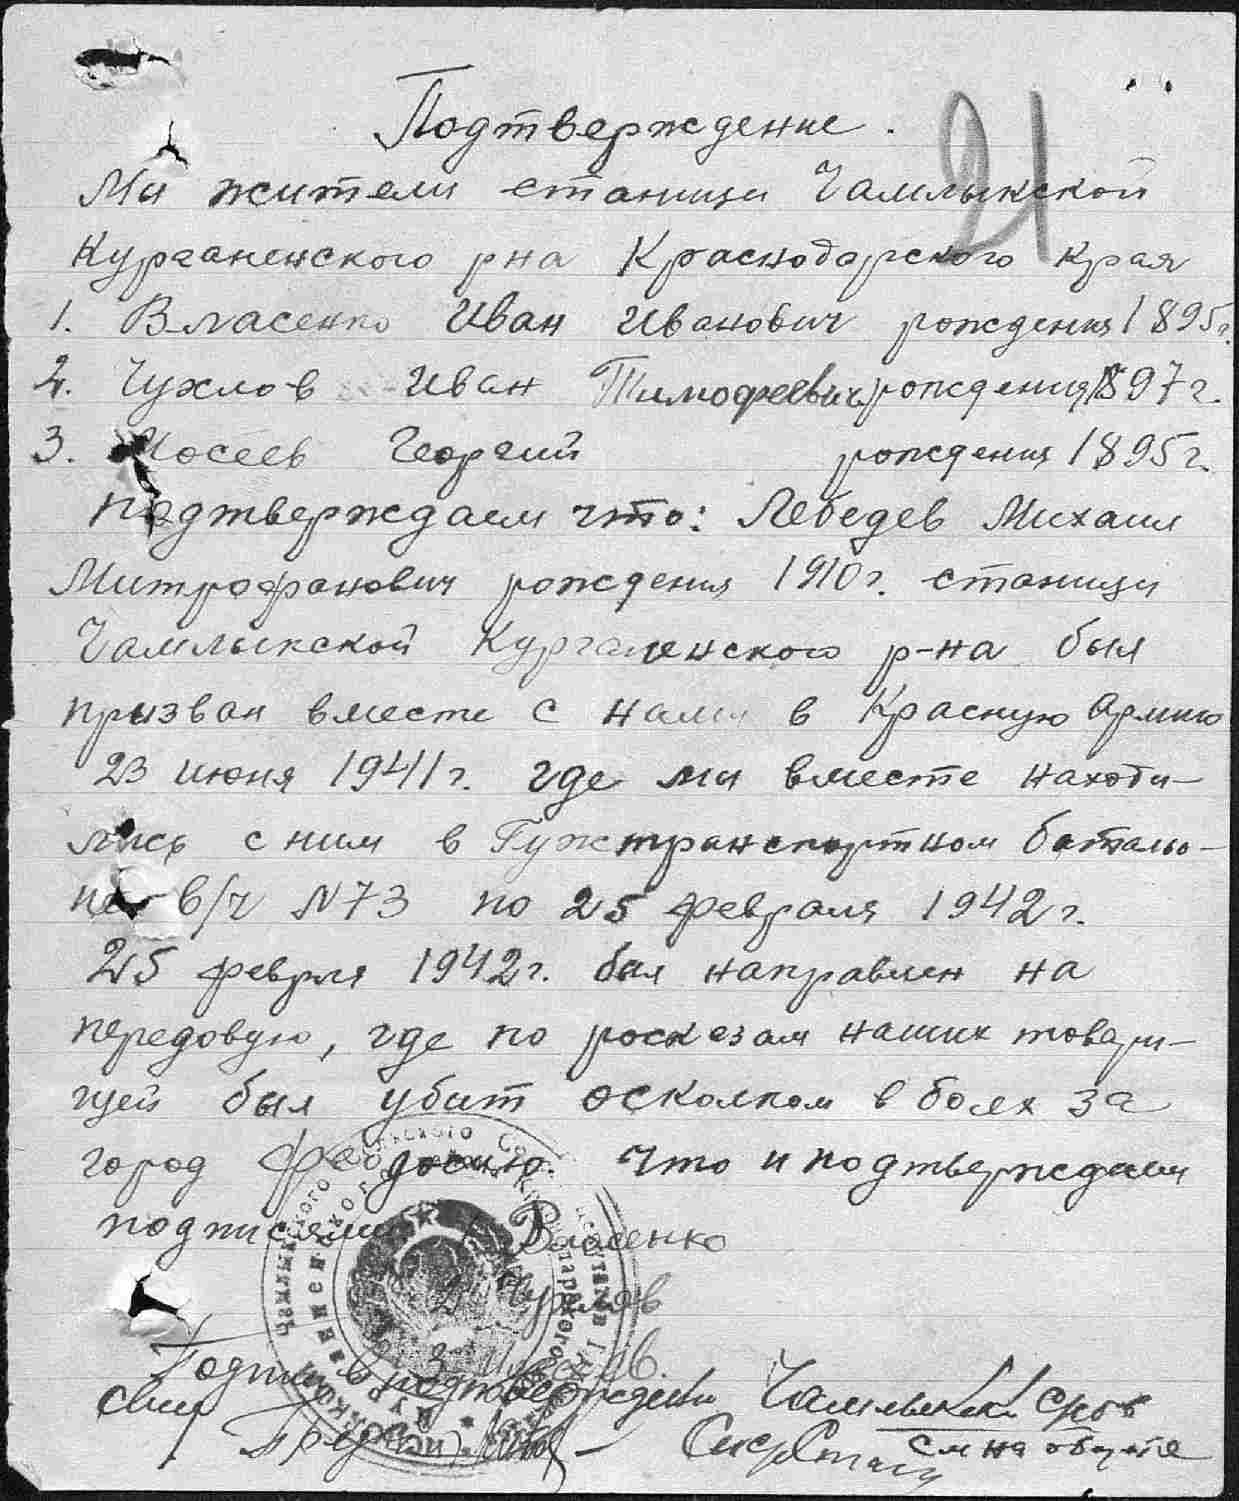 21
Подтверждение.
Мы жители станици Чамлыкской
Курганенского рна Краснодарского края
1. Власенко Иван Иванович рождения 1895г.
2. Чухлов Иван Тимофеевич рождения 1897г.
3. Мосеев Георгий рождения 1895г.
подтверждаем что: Лебедев Михаил
Митрофанович рождения 1910г. станици
Чамлыкской Курганенского р-на был
призван вместе с нами в Красную Армию
23 июня 1941г. где мы вместе находи-
лись с ним в Гужтранспортном баталио-
не в/ч N73 по 25 февраля 1942г.
25 феврля 1942г. был направлен на
передовую, где по росказам наших товари-
щей был убит осколком в боях за
город Феодосию. Что и подтверждаем
подписями 1. Власенко
2. Чухлов
3. Мосеев.
Подписи подтверждении Чамлыкск. с/сов
Пред. Секретарь см на обороте